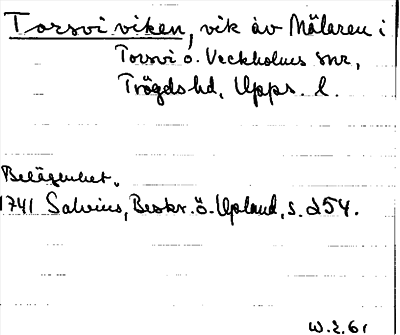 Torsviviken, vik av Mälaren i
Torsvi o. Veckholms snr,
Trögds hd, Upps. l.
Belägenhet.
1741 Salvius, Beskr. ö. Upland, s. 254.
W.E. 61